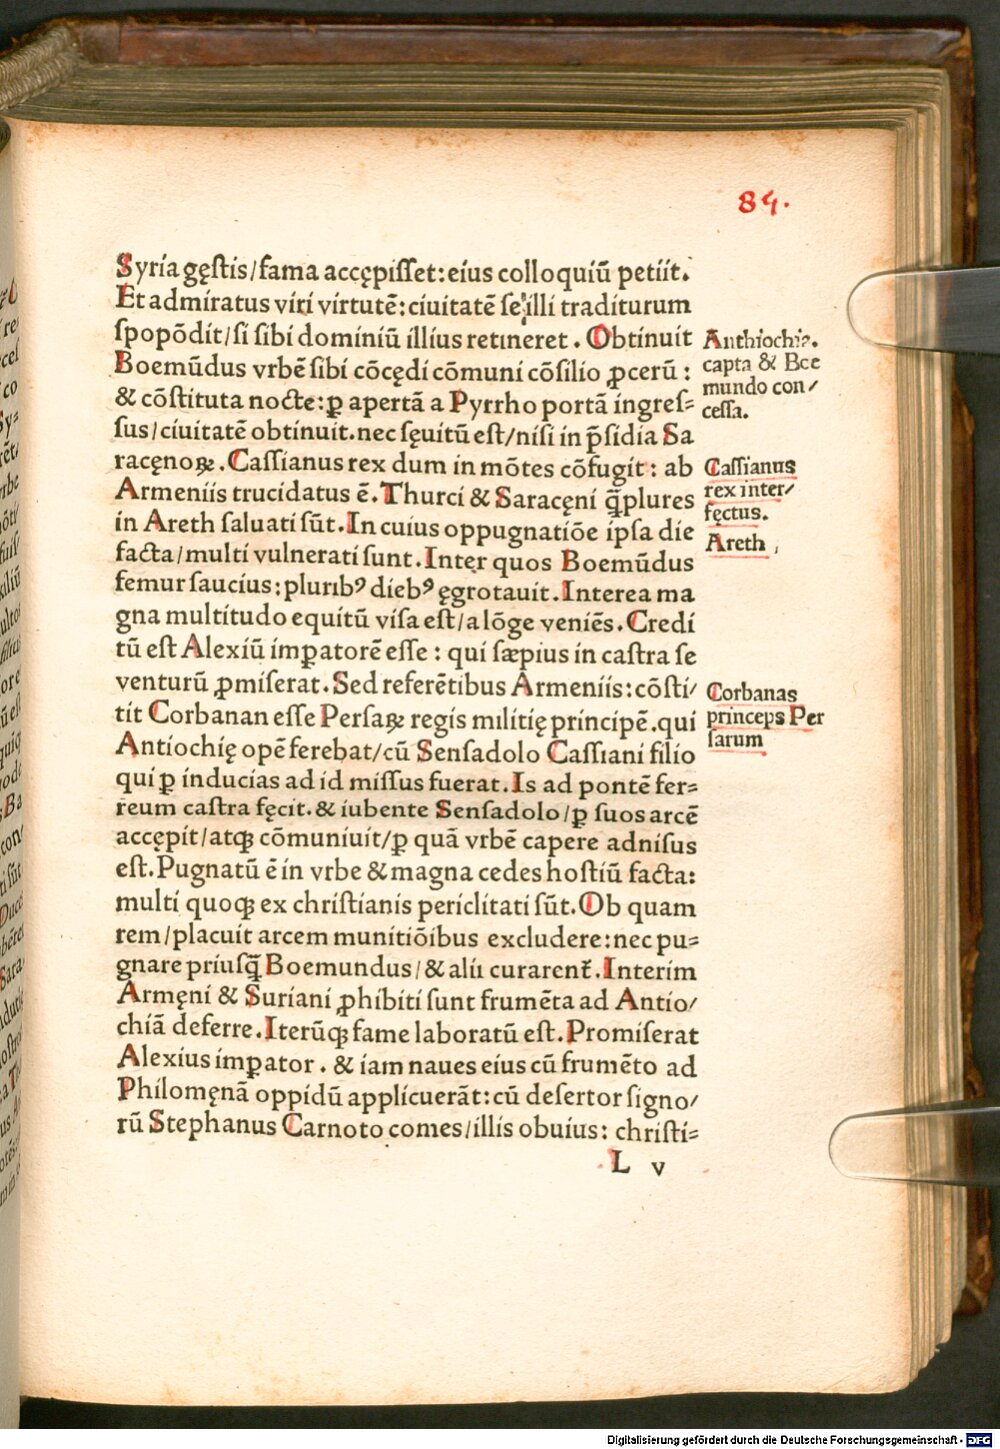 84.
Syria gęſtis/fama accępiſſet:eius colloquiū petiit.
Et admiratus viri virtutē:ciuitatē ſe illi traditurum
ſpopōdit/ſi ſibi dominiū illius retineret. Obtinuit
Boemūdus vrbē ſibi cōcędi cōmuni cōſilio ꝓcerū :
& cōſtituta nocte:ꝑ apertā a Pyrrho portā ingreſ⸗
ſus/ciuitatē obtinuit.nec ſęuitū eſt/niſi in p̄ſidia Sa
racęnoꝝ. Caſſianus rex dum in mōtes cōfugit: ab
Armeniis trucidatus ē. Thurci & Saracęni q̄plures
in Areth ſaluati ſūt. In cuius oppugnatiōe ipſa die
facta/multi vulnerati ſunt. Intęr quos Boemūdus
femur ſaucius: pluribꝰ diebꝰ ęgrotauit. Interea ma
gna multitudo equitū viſa eſt/a lōge veniēs. Credi
tū eſt Alexiū imꝑatorē eſſe : qui ſæpius in caſtra ſe
venturū ꝓmiſerat. Sed referētibus Armeniis: cōſti/
tit Corbanan eſſe Perſaꝝ regis militię principē.qui
Antiochię opē ferebat/cū Senſadolo Caſſiani filio
qui ꝑ inducias ad id miſſus fuerat. Is ad pontē fer⸗
reum caſtra fęcit. & iubente Senſadolo/ꝑ ſuos arcē
accępit/atqꝫ cōmuniuit/ꝑ quā vrbē capere adniſus
eſt. Pugnatū ē in vrbe & magna cedes hoſtiū facta:
multi quoqꝫ ex chriſtianis periclitati ſūt. Ob quam
rem/placuit arcem munitiōibus excludere:nec pu⸗
gnare priuſq̄ Boemundus/& alii curarent᷑. Interim
Armęni & Suriani ꝓhibiti ſunt frumēta ad Antio/
chiā deferre. Iterūqꝫ fame laboratū eſt. Promiſerat
Alexius imꝑator. & iam naues eius cū frumēto ad
Philomęnā oppidū applicuerāt: cū deſertor ſigno/
rū Stephanus Carnoto comes/illis obuius: chriſti⸗
L v
Anthiochia.
capta & Boe
mundo con/
ceſſa.
Caſſianus
rex inter/
fęctus.
Areth
Corbanas
princeps Per
ſarum
Digitalisierung gefördert durch die Deutsche Forschungsgemeinschaft - DFG